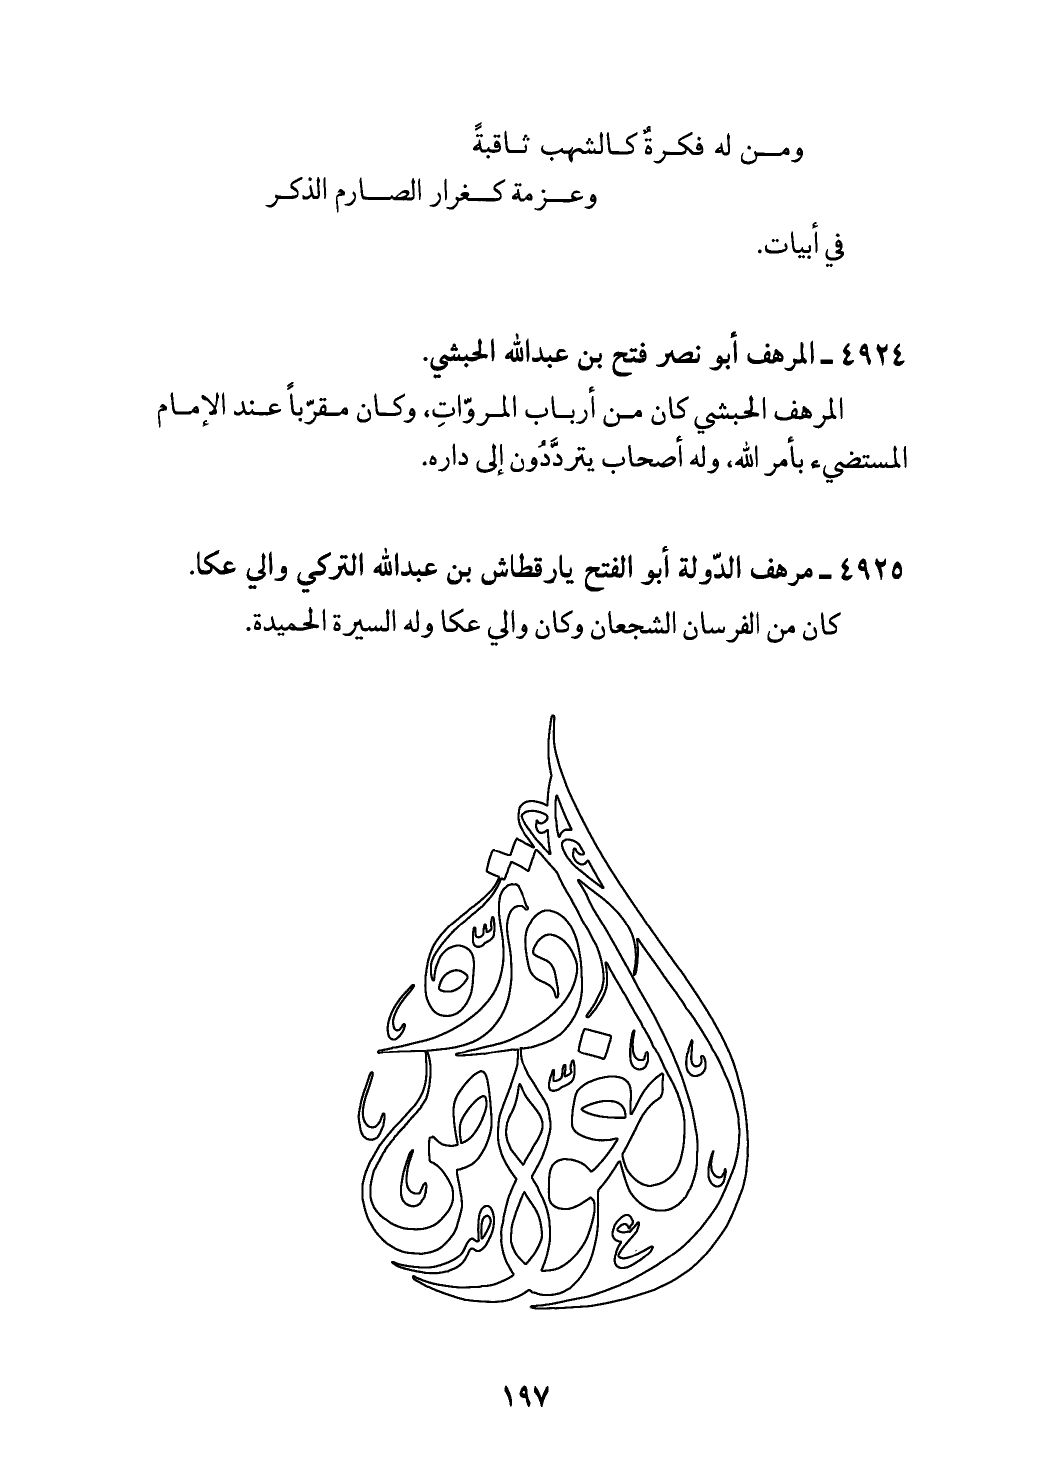 ومن له فكرةٌ كالشهب ثاقبةً
وعزمة كغرار الصارم الذكر
في أبيات.
٤٩٢٤ ـ المرهف أبو نصر فتح بن عبدالله الحبشي.
المرهف الحبشي كان من أرباب المروّاتِ، وكان مقرّباً عند الإمام
المستضيء بأمر الله، وله أصحاب يتردَّدُون إلى داره.
٤٩٢٥ ـ مرهف الدّولة أبو الفتح يارقطاش بن عبدالله التركي والي عكا.
كان من الفرسان الشجعان وكان والي عكا وله السيرة الحميدة.
درّة الغوّاص
١٩٧